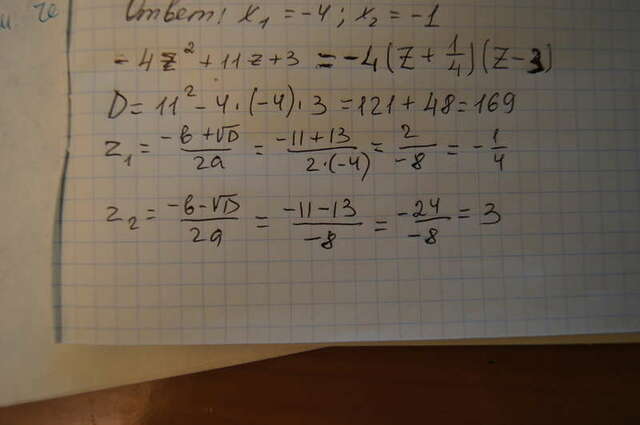 Ответ: x₁ = -4; x₂ = -1
-4z² + 11z + 3 = -4(z + 1/4)(z - 3)
D = 11² - 4 · (-4) · 3 = 121 + 48 = 169
z₁ = (-b + √D)/(2a) = (-11 + 13)/(2 · (-4)) = 2/(-8) = -1/4
z₂ = (-b - √D)/(2a) = (-11 - 13)/(-8) = (-24)/(-8) = 3